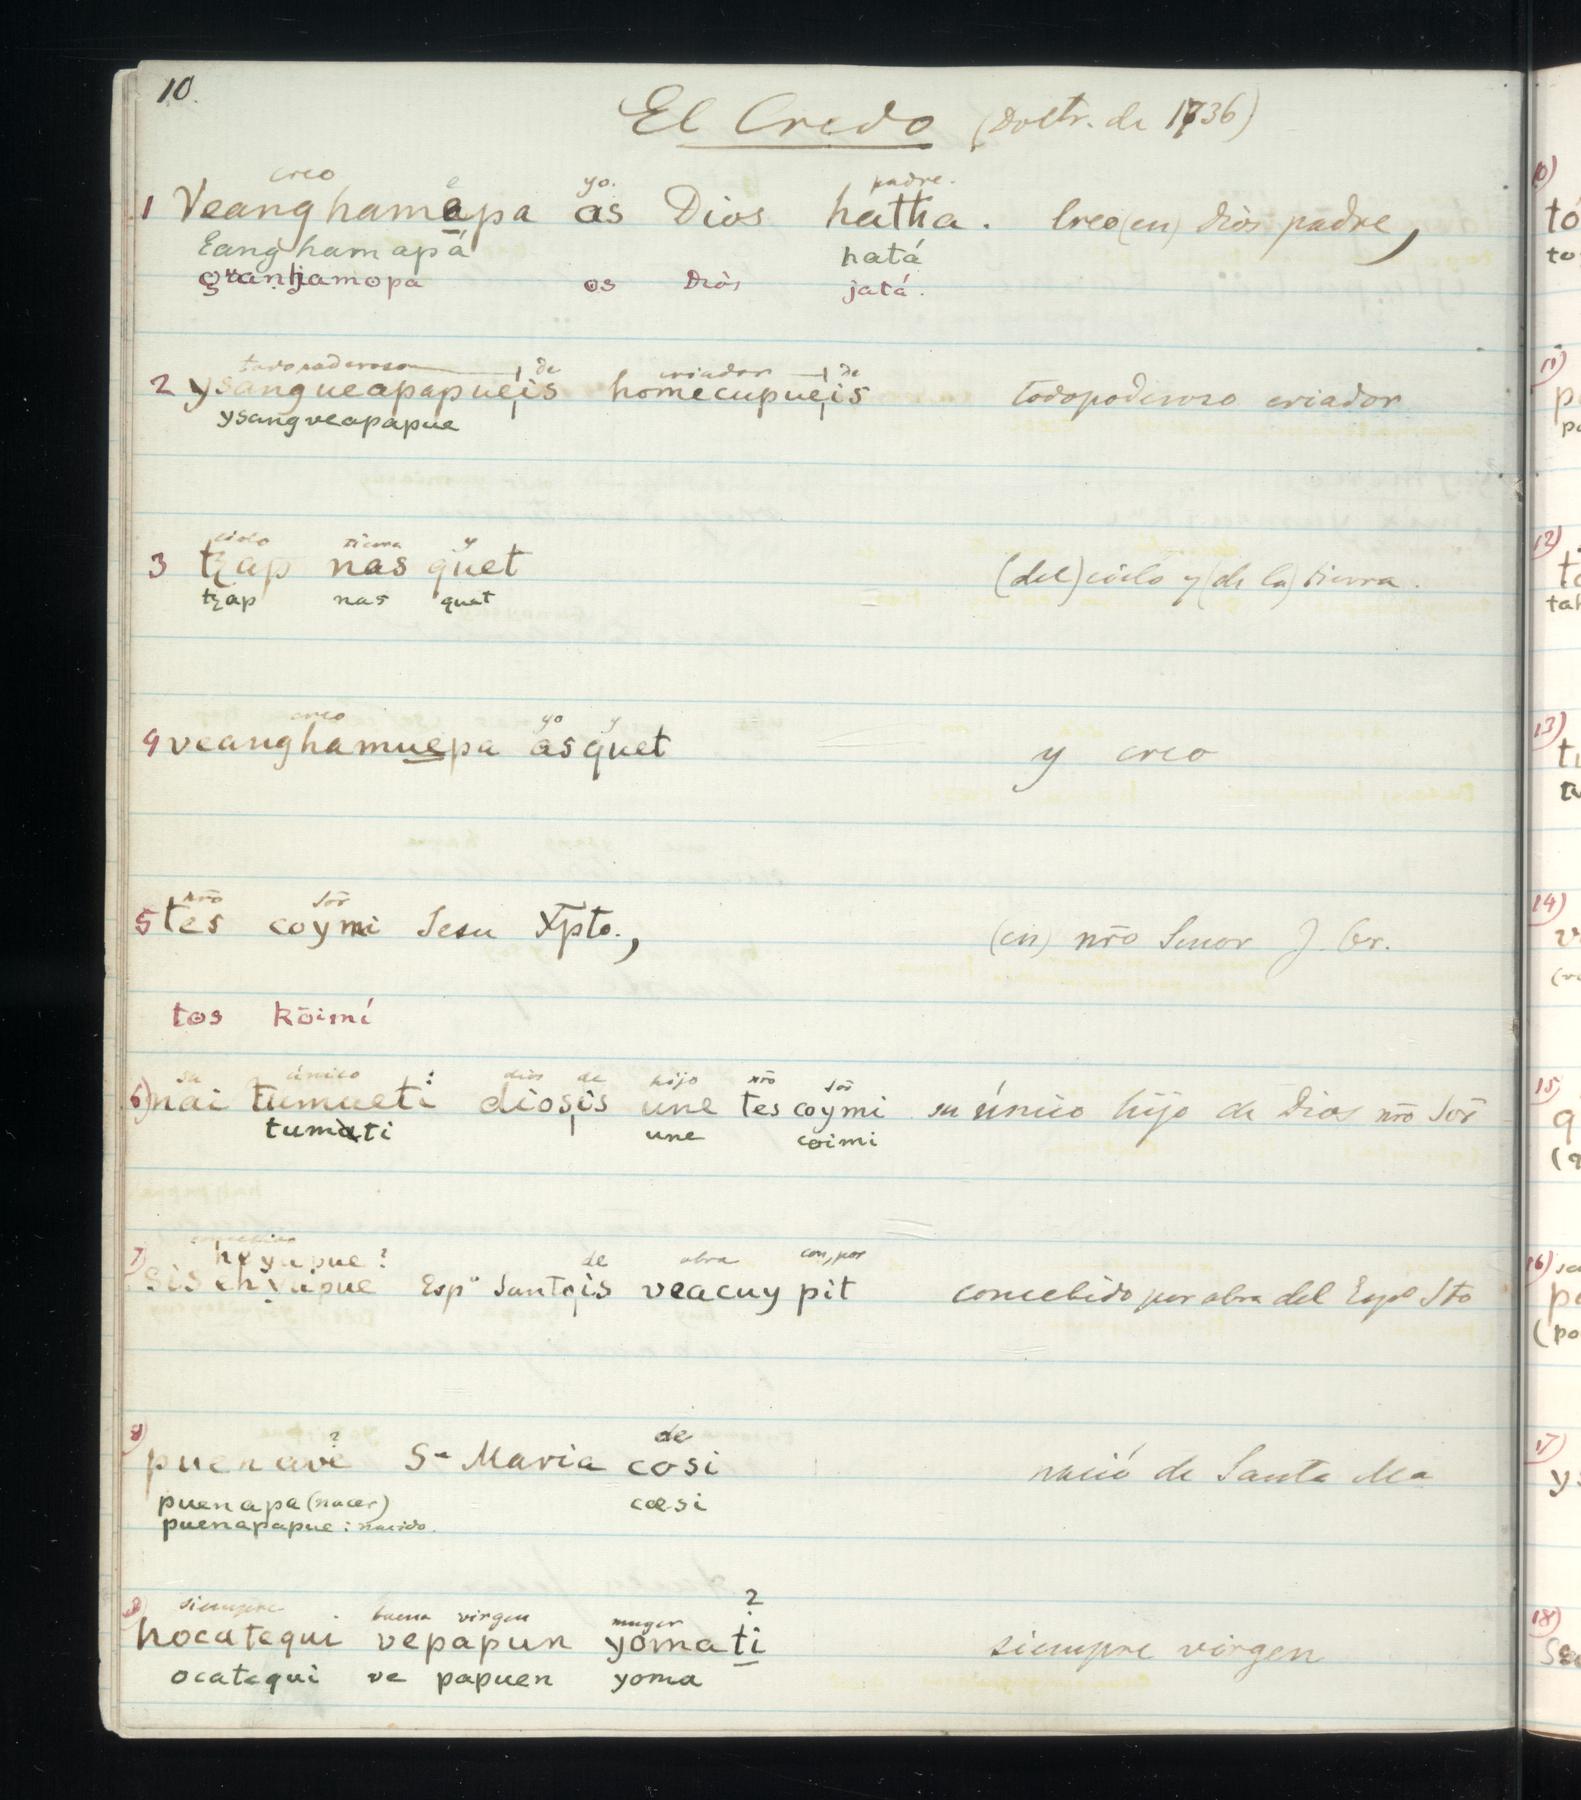 10.
El Credo (Doctr. de 1736)
creo yo. padre.
1 Veanghamepa as Dios hatha. Creo (en) Dios padre,
Eanghamapá hatá
os Dios jatá.
todopoderoso de criador de
2 ysangueapapueis homecupueis todopoderoso criador
ysangveapapue
cielo tierra y
3 tzap nas quet (del) cielo y (de la) tierra.
tzap nas quet
creo yo y
4 veanghamuepa as quet y creo
nrō Sōr
5 tes coymi Jesu Xpto., (en) nrō Senor J. Cr.
tos kōimí
su único : dios de hijo nrō Sōr
6) nai tumueti diosis une tes coymi su único hijo de Dios nrō Sōr
tumati une coimi
heyapue? de obra con, por
7) sis ehyapue Espu Santois veacuy pit concebido por obra del Espo Sto
? de
8) puenave Sa Maria cosi nació de Santa Ma
puenapa (nacer) cœsi
puenapapue: nacido.
siempre buena virgen muger ?
9) hocatequi vepapun yomati siempre virgen
ocatequi ve papuen yoma
10)
11)
12)
13)
14)
15
16)
17)
18)